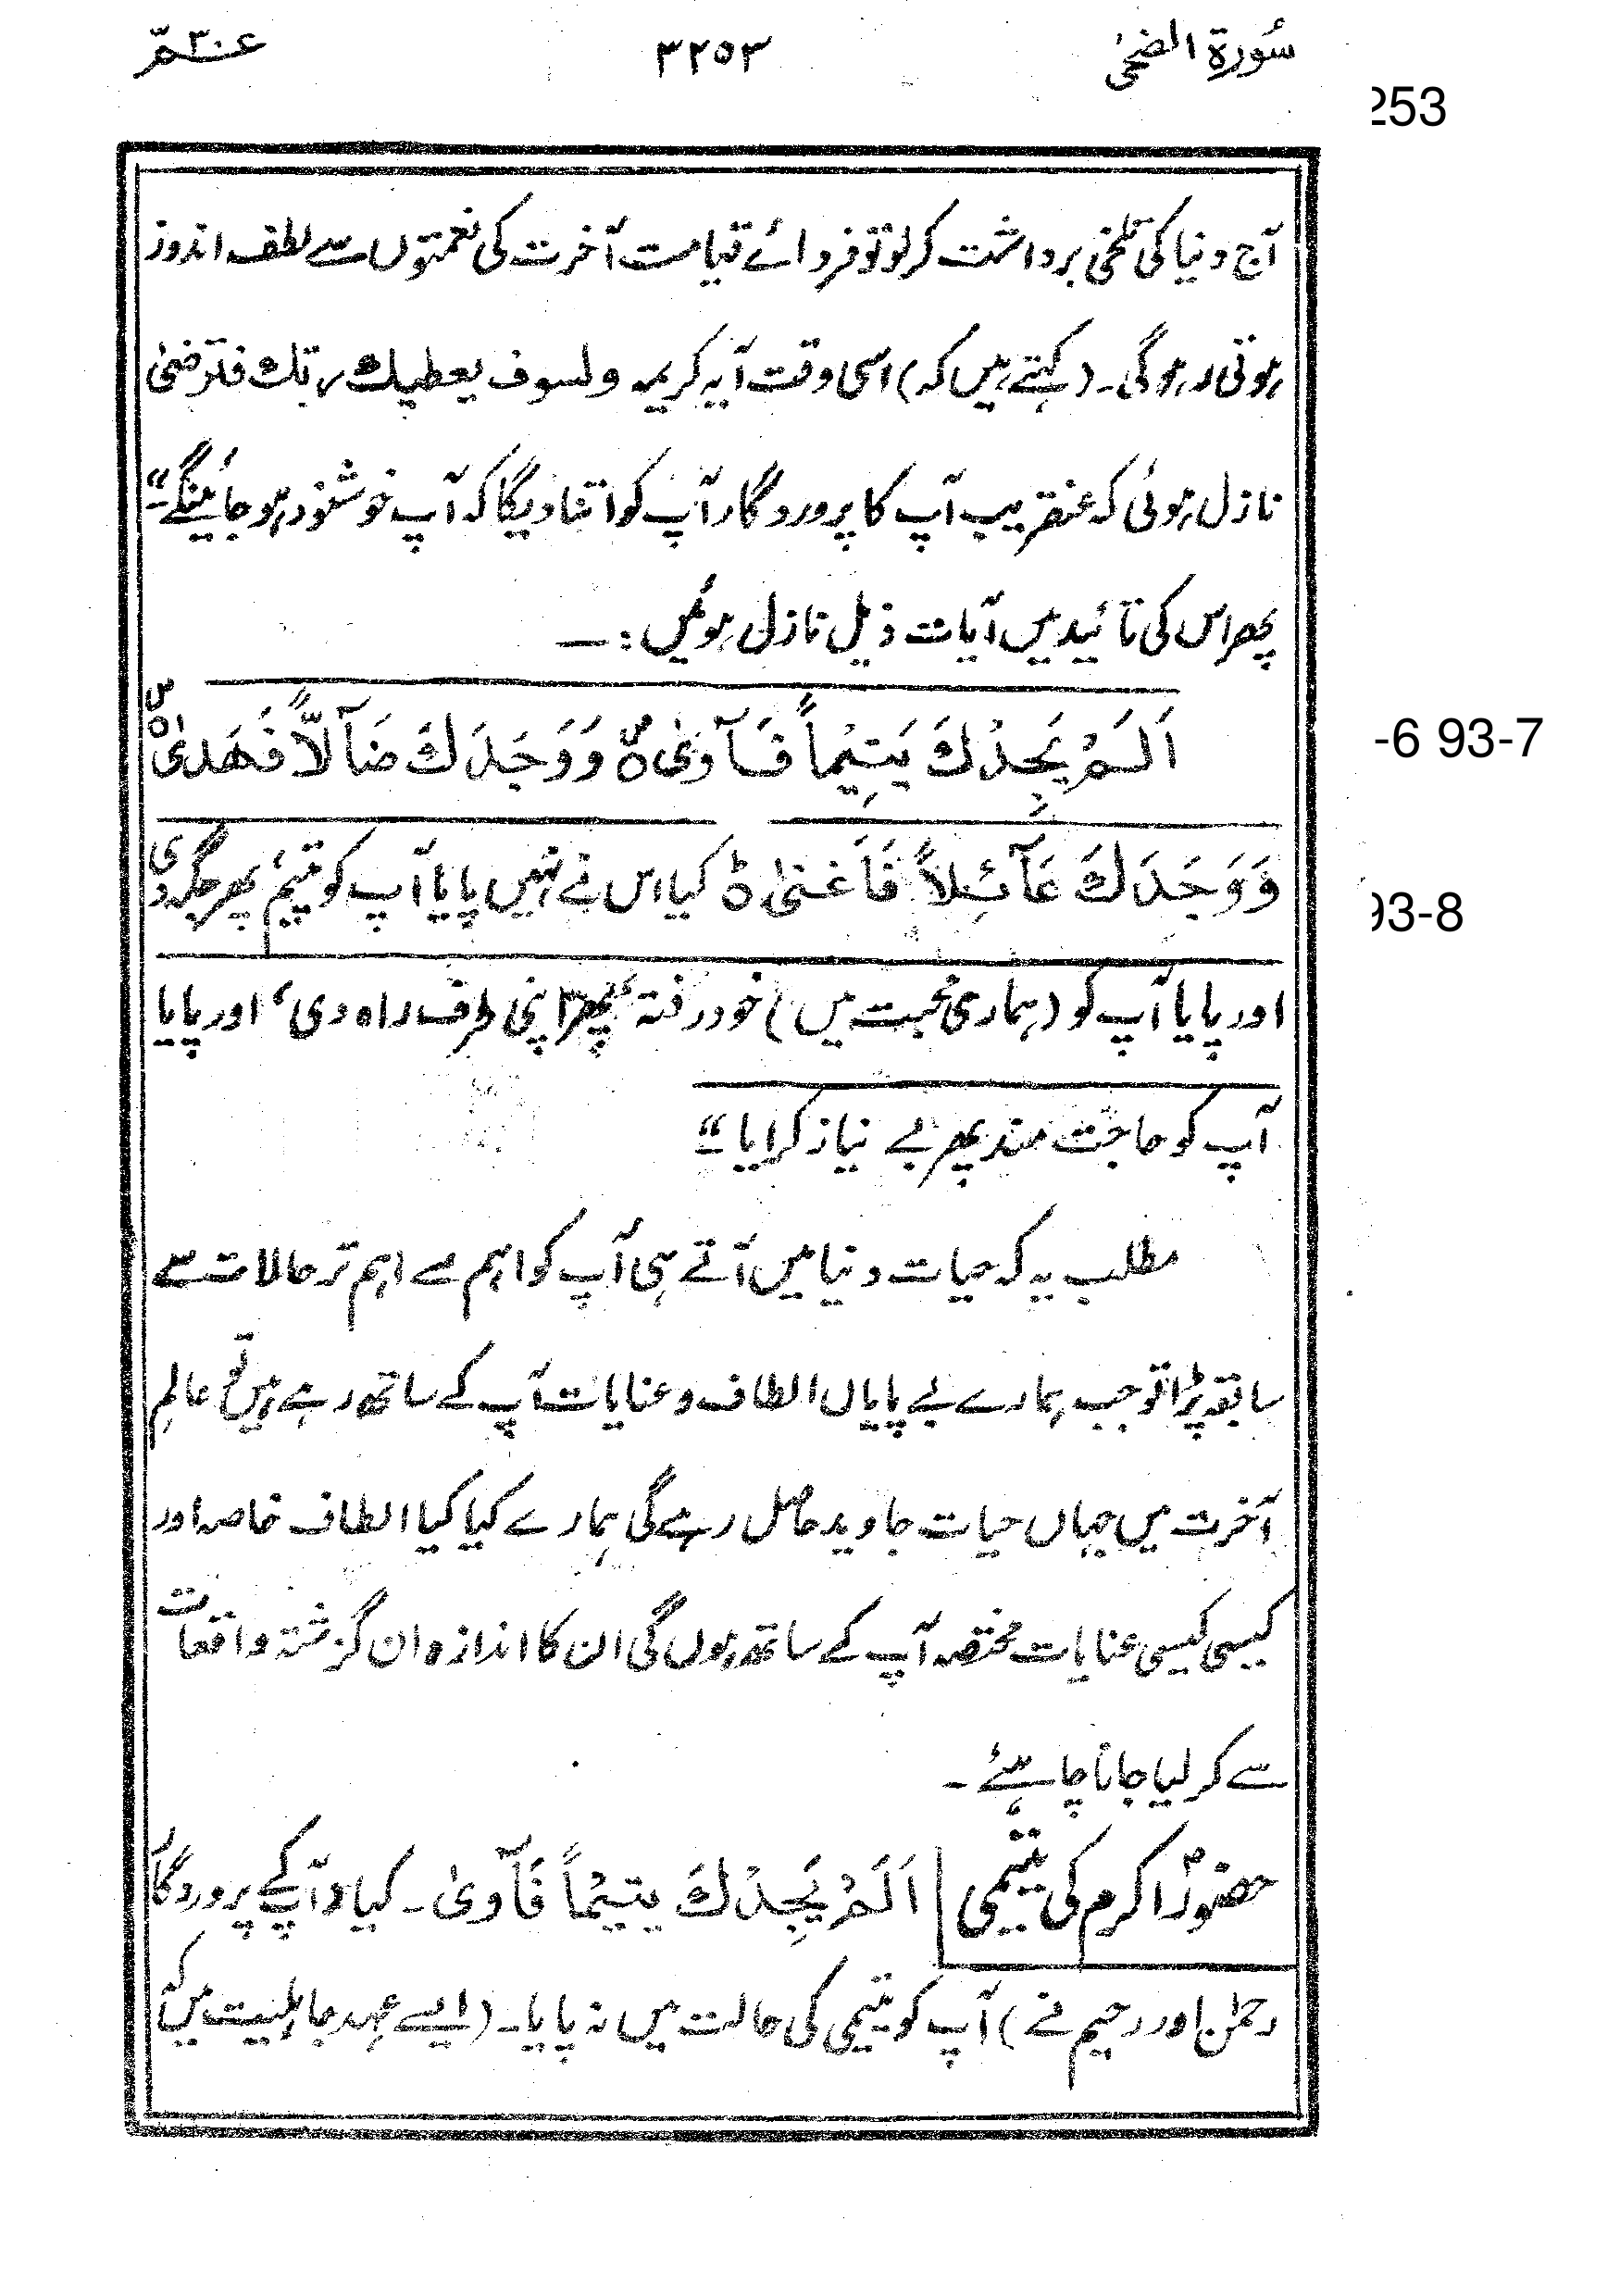 سُورة الضحیٰ ۳۲۵۳ عـــم ۳۰
253
آج دنیا کی تلخی برداشت کر لو تو فردائے قیامت آخرت کی نعمتوں سے لطف اندوز
ہوتی رہو گی۔ (کہتے ہیں کہ) اسی وقت آیہ کریمہ ولسوف یعطیک ربک فترضیٰ
نازل ہوئی کہ عنقریب آپ کا پروردگار آپ کو اتنا دیگا کہ آپ خوشنود ہو جائینگے"۔
پھر اس کی تائید میں آیات ذیل نازل ہوئیں :ـــ
اَلَمْ یَجِدْكَ یَتِیْماً فَآوٰی ہ وَوَجَدَكَ ضَآلّاً فَھَدیٰ ہ
-6 93-7
وَوَجَدَكَ عَآئِلاً فَاَغنیٰ ہ کیا اس نے نہیں پایا آپ کو یتیم' پھر جگہ دی
93-8
اور پایا آپ کو (ہماری محبت میں) خود رفتہ' پھر اپنی طرف راہ دی' اور پایا
آپ کو حاجت مند پھر بے نیاز کر دیا"۔
مطلب یہ کہ حیات دنیا میں آتے ہی آپ کو اہم سے اہم تر حالات سے
سابقہ پڑا تو جب ہمارے بے پایاں الطاف و عنایات آپ کے ساتھ رہے ہیں تو عالمِ
آخرت میں جہاں حیات جاوید حاصل رہے گی ہمارے کیا کیا الطاف خاصہ اور
کیسی کیسی عنایات مختصہ آپ کے ساتھ ہوں گی ان کا اندازہ ان گزشتہ واقعات
سے کر لیا جانا چاہئے۔
حضورؐ اکرم کی یتیمی | اَلَمْ یَجِدْكَ یتیْماً فَآوٰی۔ کیا (آپ کے پروردگار
رحمٰن اور رحیم نے) آپ کو یتیمی کی حالت میں نہ پایا۔ (ایسے عہد جاہلیت میں کہ